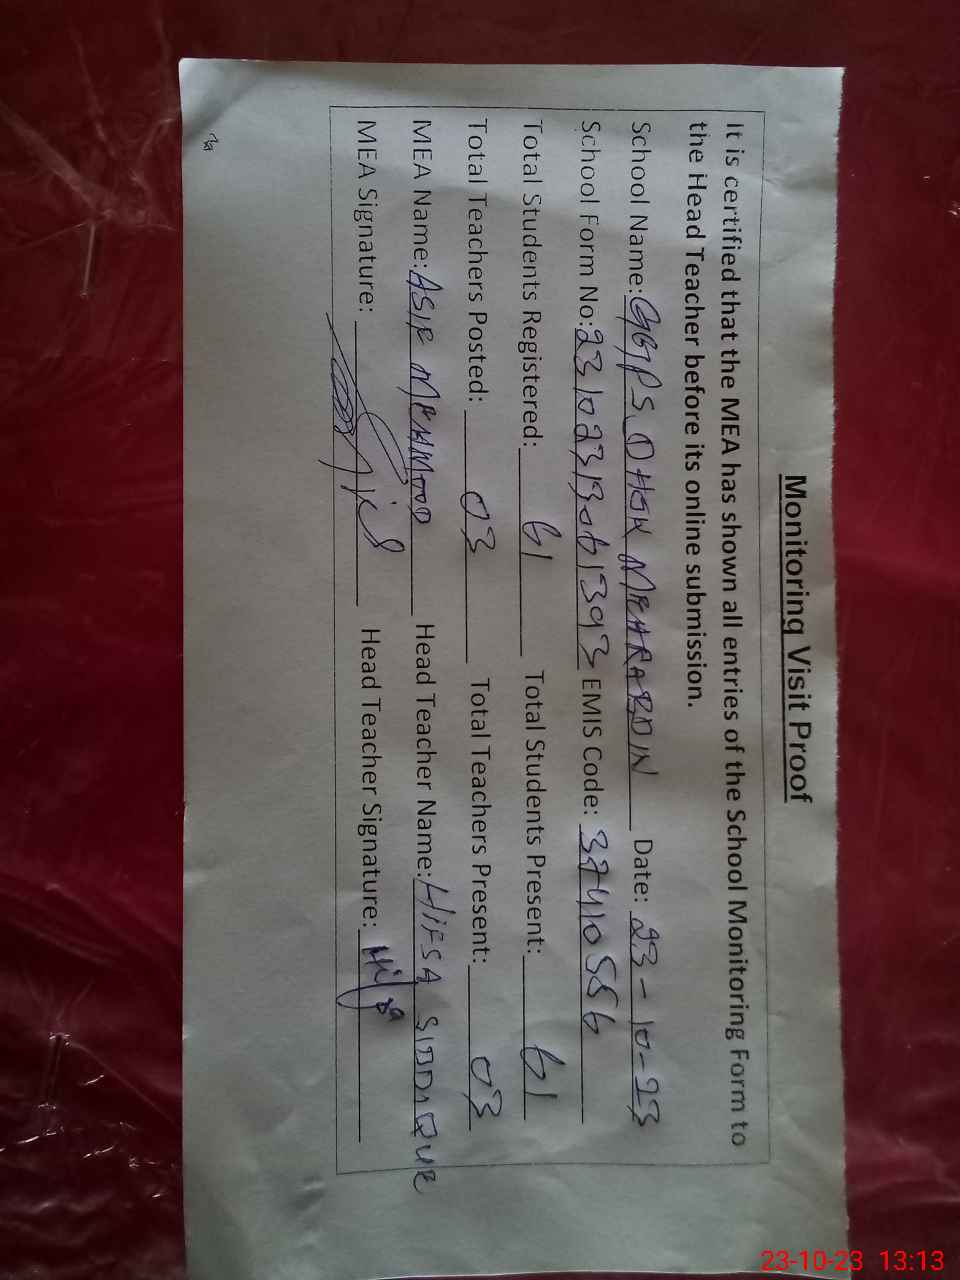 Monitoring Visit Proof
It is certified that the MEA has shown all entries of the School Monitoring Form to
the Head Teacher before its online submission.
School Name: GGPS DHOK MEHRABDIN Date: 23-10-23
School Form No: 23102313061393 EMIS Code: 37410556
Total Students Registered: 61 Total Students Present: 61
Total Teachers Posted: 03 Total Teachers Present: 03
MEA Name: ASIF MEHMOOD Head Teacher Name: HIFSA SIDDIQUE
MEA Signature: Head Teacher Signature: Hifsa
23-10-23 13:13